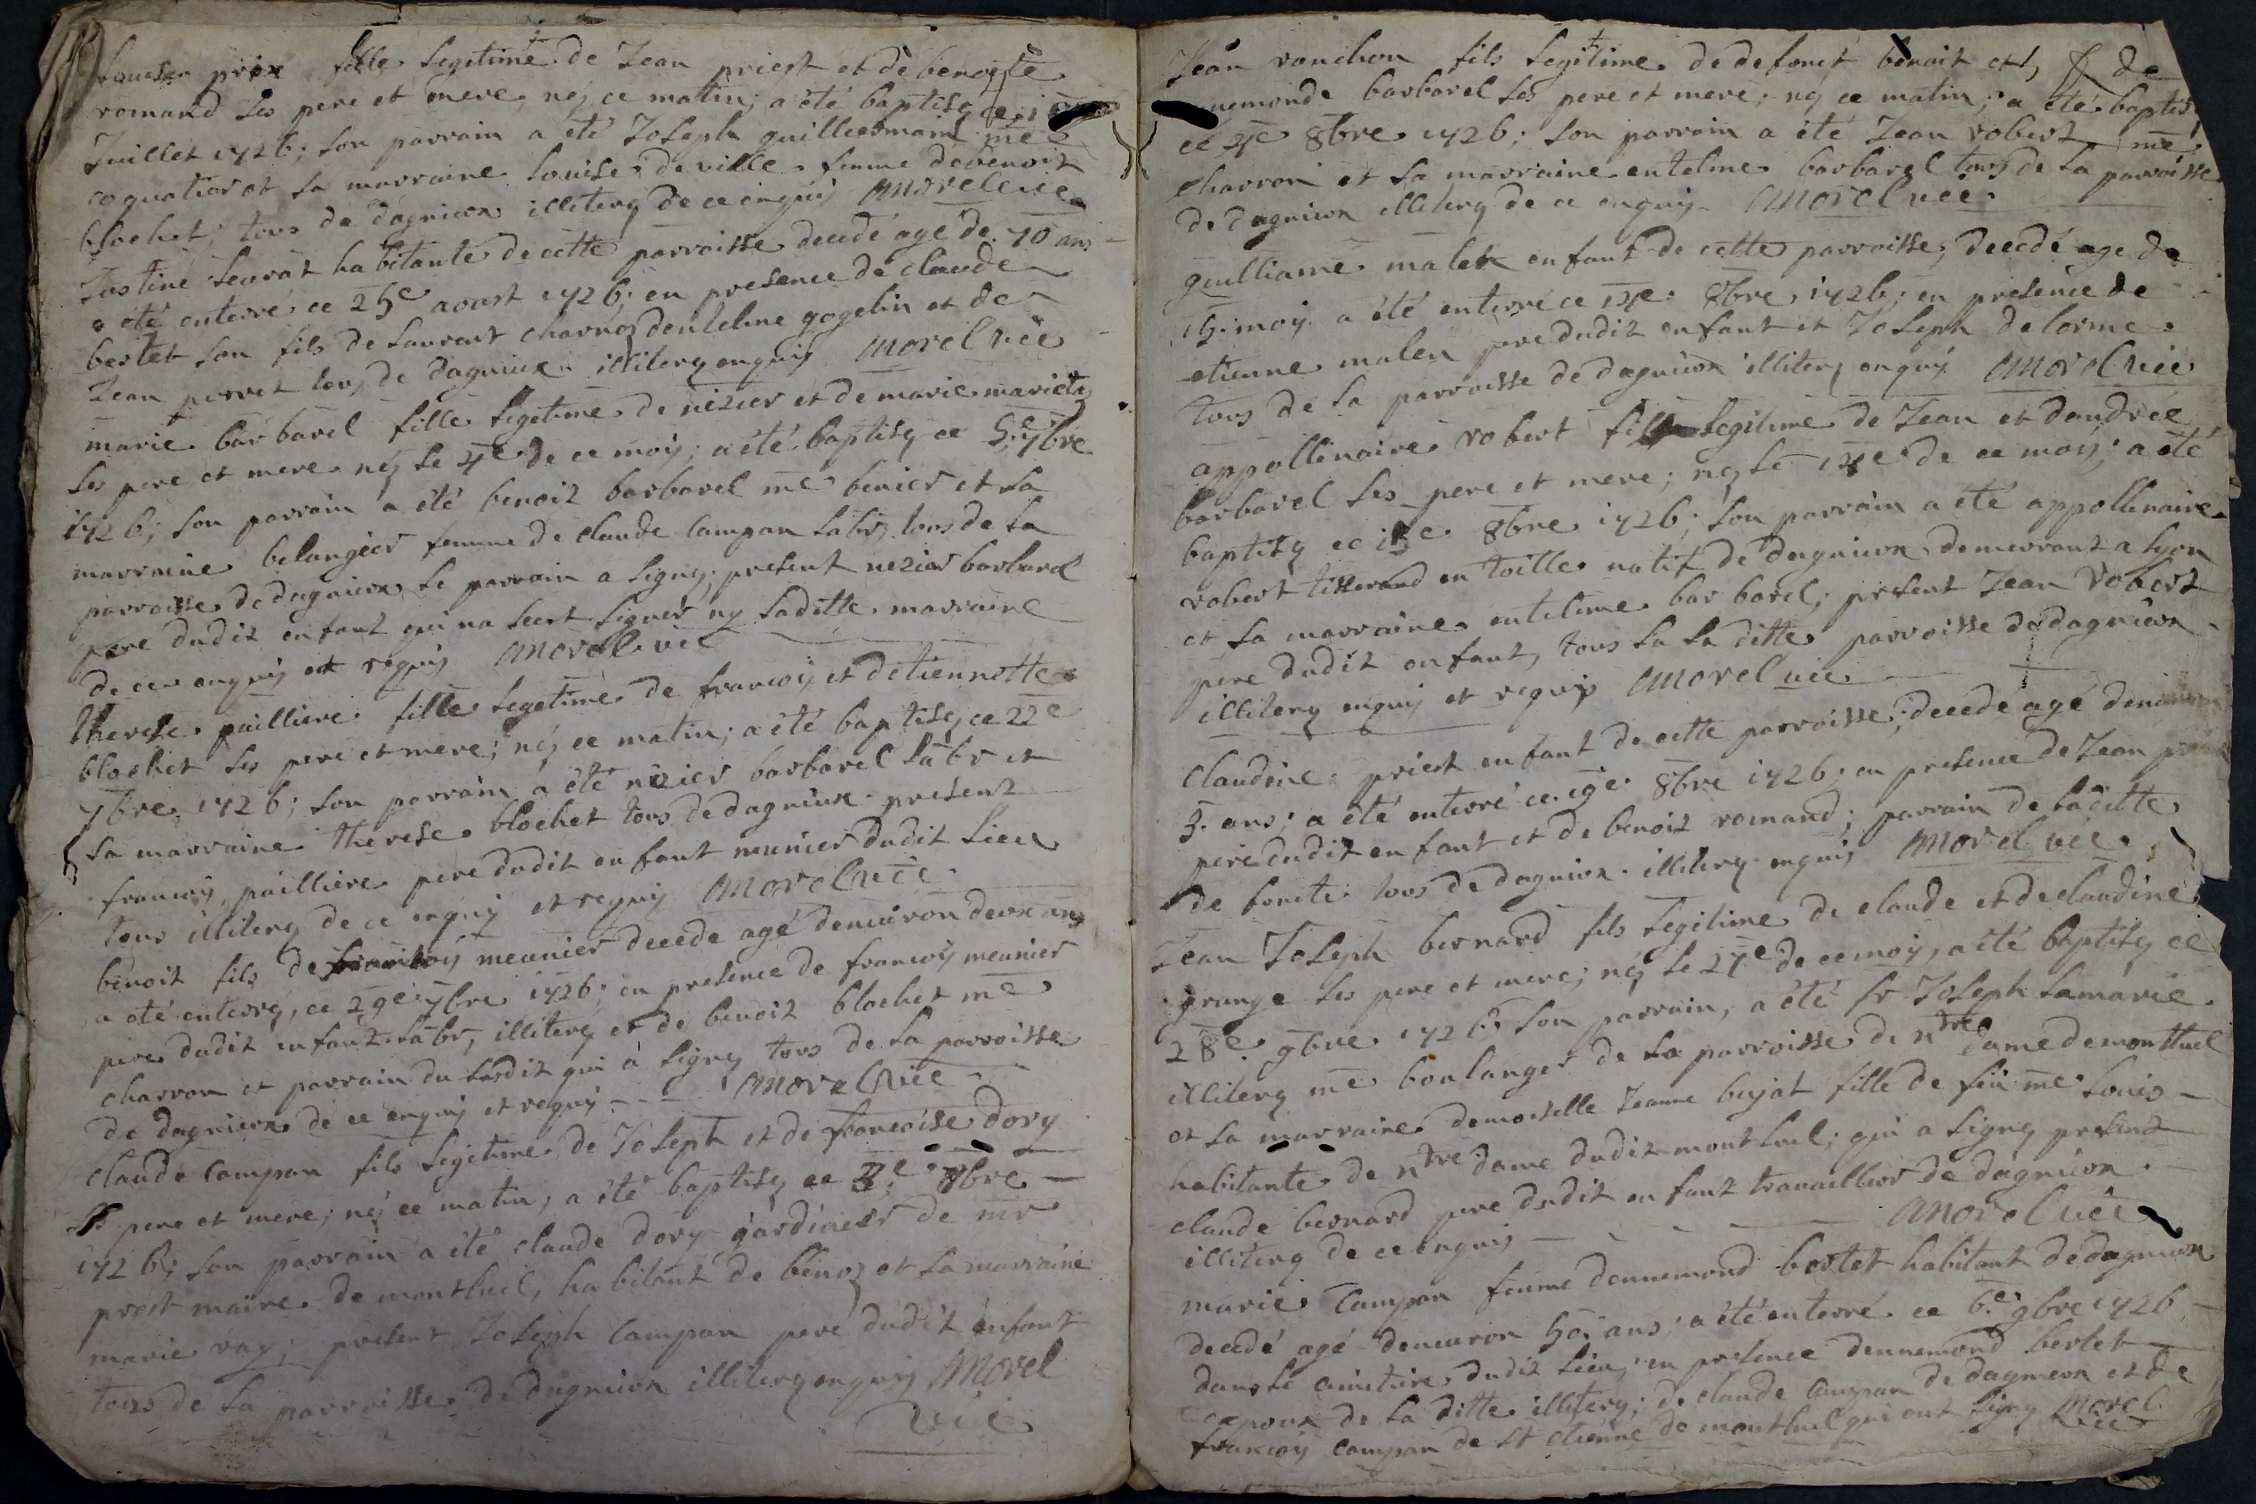 fille legitime de Jean priest et de benoiste
romand ses pere et mere, néz ce matin; a été baptisez ce
Juillet 1726; son parrain a été Joseph guillermain me
coquatier et sa marraine louise deville femme de benoit
blochet; tous de dagnieux illiterez de ce enquis Morel vic
Justine habitante de cette parroisse decedé agé de 70 ans
a eté enterré ce 25e aoust 1726; en presence de claude
bertet son fils de laurent charnoz dentelme gogelin et de
Jean perret tous de dagnieux illiterez enquis Morel vic
marie barbarel fille legetime de nezier et de marie
ses pere et mere néz le 4e de ce mois; a été baptisez ce 5e 7bre
1726; son parrain a été benoit barbarel me et la
marraine belangier femme de claude Campan labr; tous de la
parroisse de dagnieux le parrain a signez; present nezier barbarel
pere dudit enfant qui na sceut signer ny laditte marraine
de ce enquis et requis Morel vic
therese pailliere fille legetime de francois et detiennette
blochet ses pere et mere; néz ce matin; a été baptisez ce 22e
7bre 1726; son parrain a été nezier barbarel labr et
sa marraine therese blochet tous de dagnieux present
francois pailliere pere dudit enfant meunier dudit lieu
tous illiterez de ce enquis et requis Morel vic
benoit fils de francois meunier decede agé denviron deux ans
a eté enterré, ce 29e 7bre 1726; en presence de francois meunier
pere dudit enfant labr, illiterez et de benoit blochet me
charron et parrain du susdit qui à signez tous de la parroisse
de dagnieux de ce enquis et requis Morel vic
claude Campan fils legetime de Joseph et de francoise dory
ses pere et mere; néz ce matin; a été baptisez ce 3e 8bre
1726; son parrain a été claude dory gardinier de mr
prost maire de montluel, habitant de bénoz et sa marraine
marie ray; present Joseph Campan pere dudit enfant
tous de la parroisse de dagnieux illiterez enquis Morel
vic
Jean ronchon fils legitime de defunct benoit et de
barbarel ses pere et mere; néz ce matin; a été baptisé
ce 4e 8bre 1726; son parrain a été Jean robert me
charron et sa marraine entelme barbarel tous de la parroisse
de dagnieux illiterez de ce enquis Morel vic
guilliame malen enfant de cette parroisse, decedé age de
15 mois a été enterré ce 8bre 1726; en presence de
etienne malen pere dudit enfant et Joseph delorme
tous de la parroisse de dagnieux illiterez enquis Morel vic
appollinaire robert fille legitime de Jean et dandrée
barbarel ses pere et mere; néz le de ce mois; a été
baptisez ce 8bre 1726; son parrain a été appollinaire
robert tisserand en toille natif de dagnieux demeurant a lyon
et sa marraine entelme barbarel; present Jean robert
pere dudit enfant, tous la la ditte parroisse de dagnieux
illiterez enquis et requis Morel vic
Claudine priest enfant de cette parroisse; decedé agé denviron
3 ans; a été enterré ce 19e 8bre 1726; en presence de Jean
pere dudit enfant et de benoit romand; parrain de laditte
defuncte tous de dagnieux illiterez enquis Morel vic
Jean Joseph bernard fils legitime de claude et de claudine
grange ses pere et mere; néz le 27e de ce mois, a été baptisez ce
28e 9bre 1726 son parrain, a été sr Joseph lamarie
illiterez me boulanger de la parroisse de ntre dame de montluel
et sa marraine demoiselle Jeanne bujat fille de feu me Louis
habitante de ntre dame dudit montluel; qui a signez present
claude bernard pere dudit enfant travaillier de dagnieux
illiterez de ce enquis Morel vic
marie Campan femme dennemond bertet habitant de dagnieux
decedé agé denviron 50 ans; a été enterré ce 6e 9bre 1726
dans le cimetiere dudit lieu, en presence dennemond bertet
epoux de la ditte illiterez; de claude Campan de dagnieux et de
francois Campan de st etienne de montluel qui ont signez Morel
vic